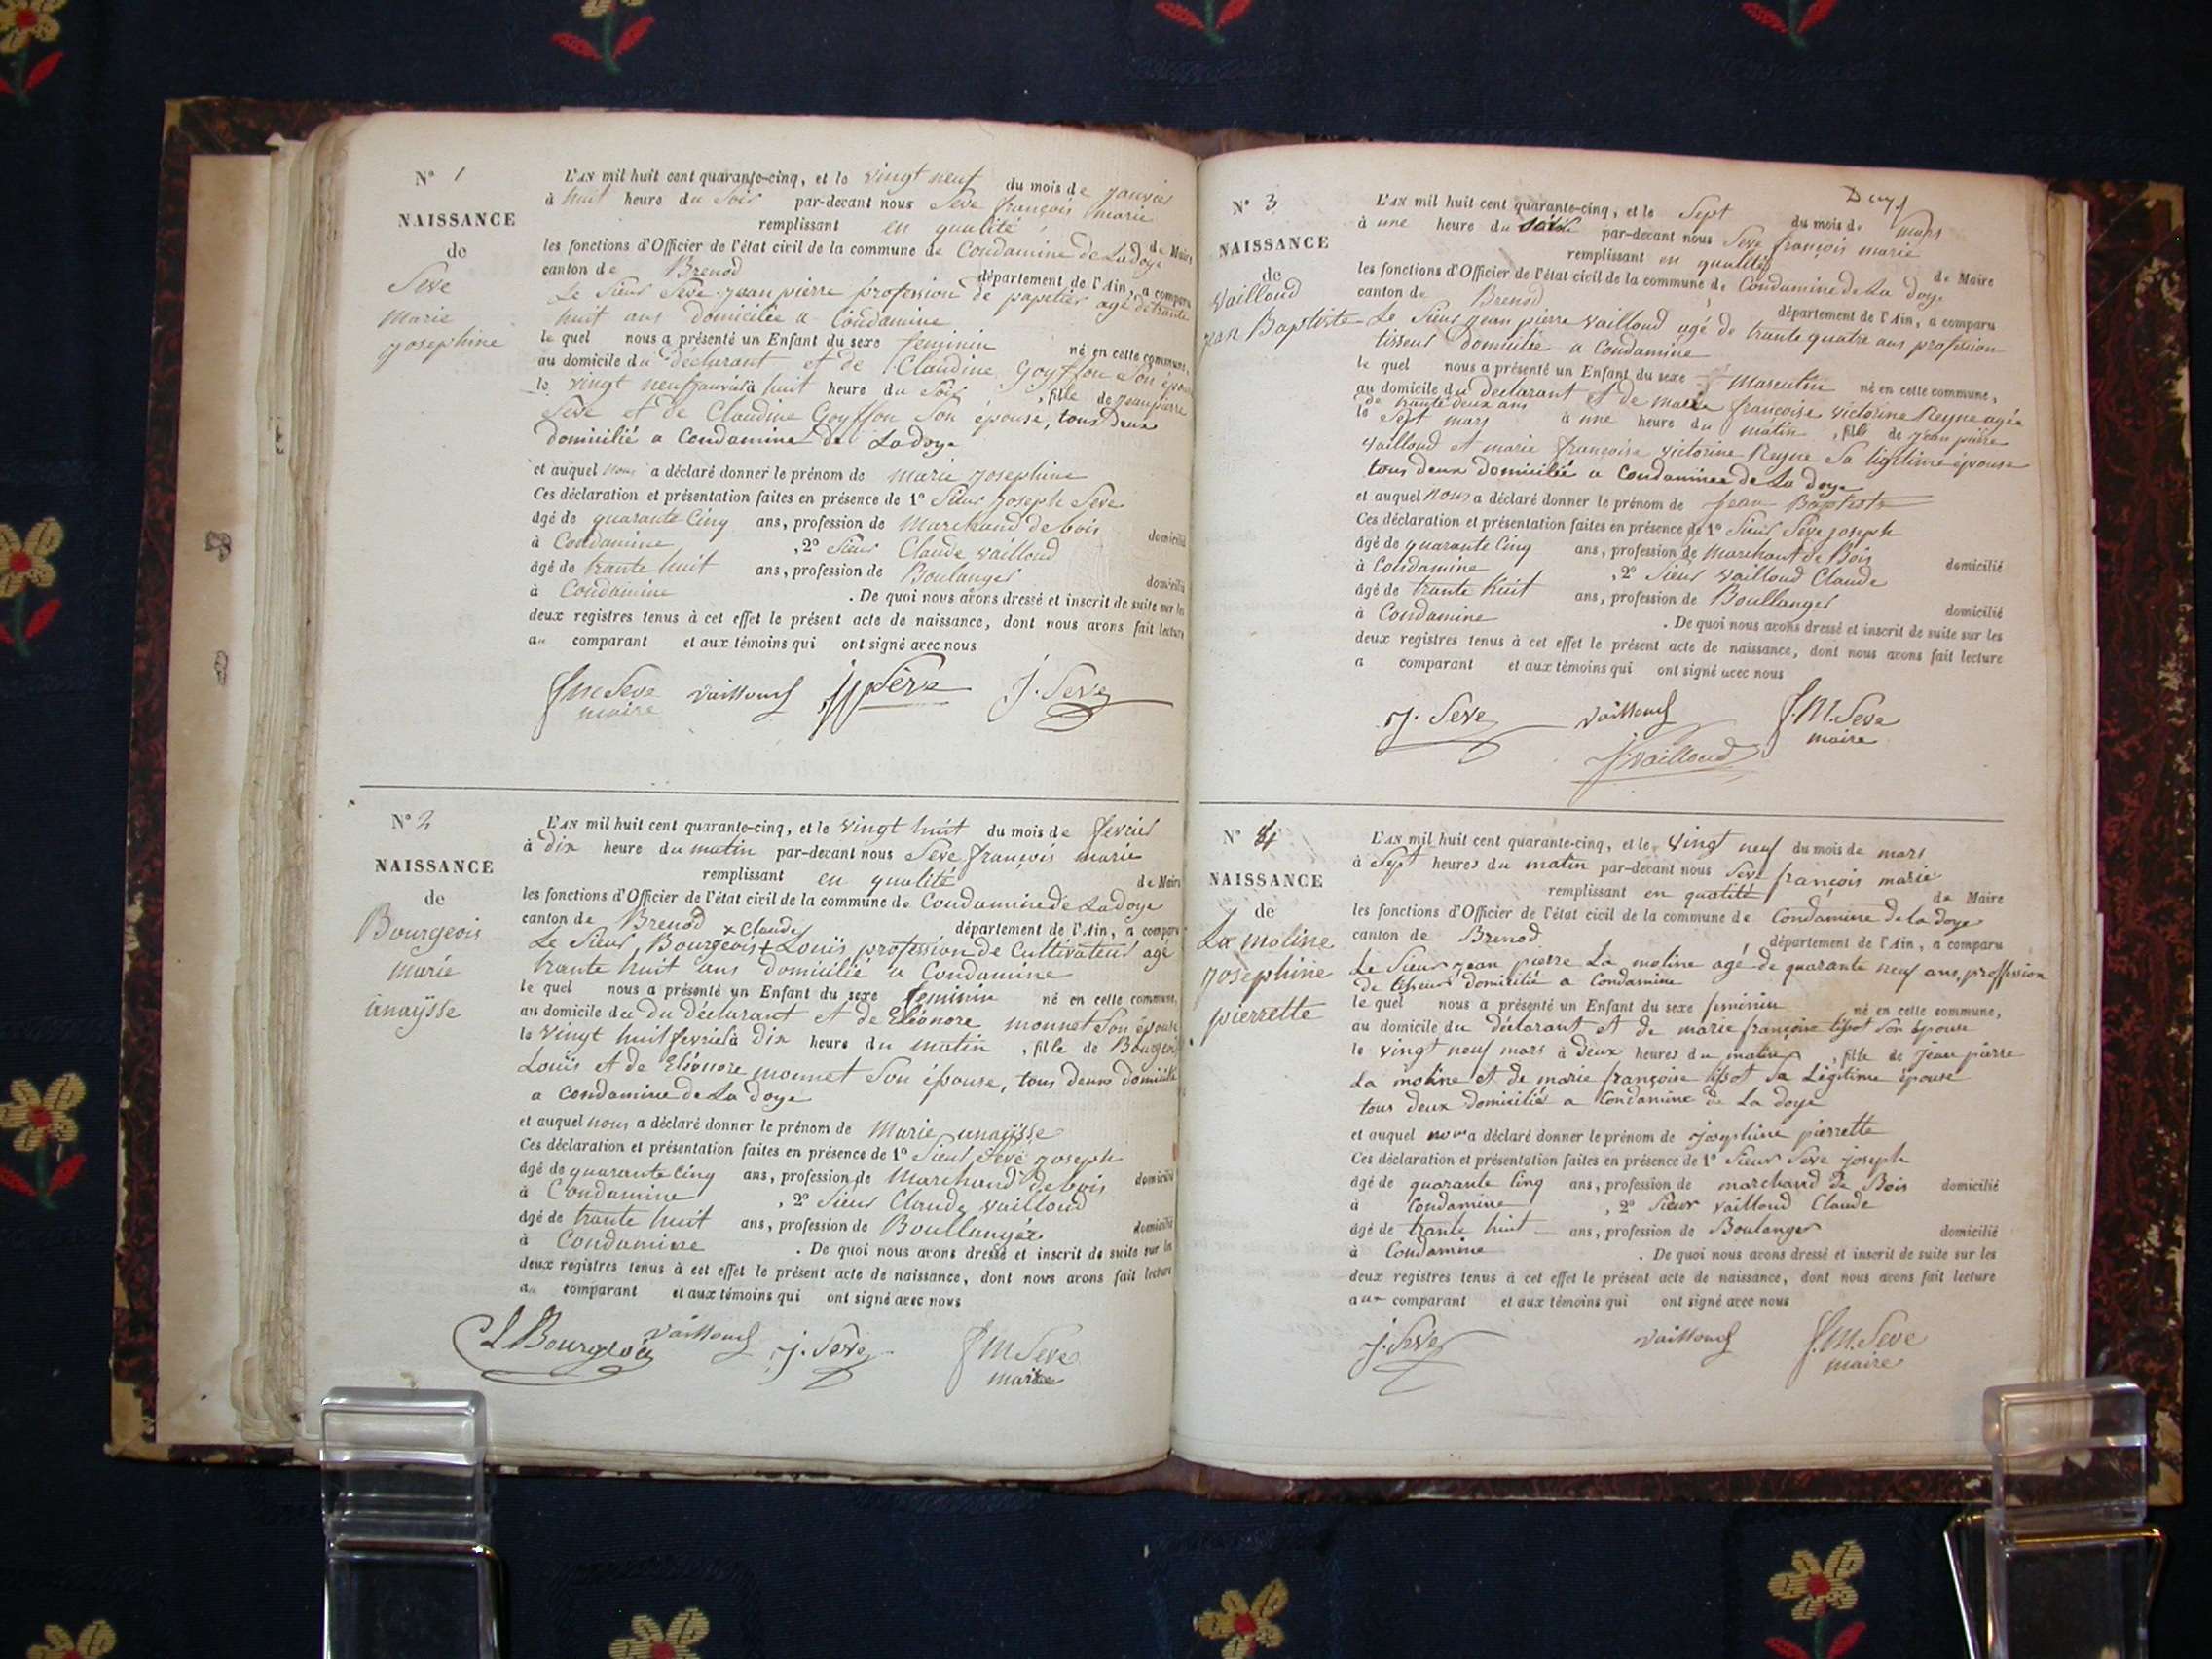 N° 1
NAISSANCE
de
Seve
Marie
josephine
L'AN mil huit cent quarante-cinq, et le vingt neuf du mois de janvier
à huit heure du soir par-devant nous Seve françois marie
remplissant en qualité de Maire
les fonctions d'Officier de l'état civil de la commune de Condamine de Ladoye
canton de Brenod département de l'Ain, a comparu
Le Sieur Seve jean pierre profession de papetier agé de trante
huit ans domicilée a Condamine
le quel nous a présenté un Enfant du sexe feminin né en cette commune,
au domicile du declarant et de Claudine Goyffon son épouse
le vingt neuf janvier à huit heure du soir, fille de jean pierre
Seve et de Claudine Goyffon son épouse, tous deux
domicilié a Condamine de Ladoye
et auquel nous a déclaré donner le prénom de marie josephine
Ces déclaration et présentation faites en présence de 1° Sieur joseph Seve
âgé de quarante Cinq ans, profession de Marchand de bois domicilié
à Condamine, 2° Sieur Claude vailloud
âgé de trante huit ans, profession de Boulanger domicilié
à Condamine. De quoi nous avons dressé et inscrit de suite sur les
deux registres tenus à cet effet le présent acte de naissance, dont nous avons fait lecture
au comparant et aux témoins qui ont signé avec nous
f m Seve vailloud jp Seve J. Seve
maire
N° 2
NAISSANCE
de
Bourgeois
marie
anaÿsse
L'AN mil huit cent quarante-cinq, et le vingt huit du mois de fevrier
à dix heure du matin par-devant nous Seve françois marie
remplissant en qualité de Maire
les fonctions d'Officier de l'état civil de la commune de Condamine de Ladoye
canton de Brenod département de l'Ain, a comparu
x Claude
Le Sieur Bourgeois x Louïs profession de Cultivateur agé
trante huit ans domicilié a Condamine
le quel nous a présenté un Enfant du sexe feminin né en cette commune,
au domicile du du déclarant et de Eléonore monnet son épouse
le vingt huit fevrier à dix heure du matin, fille de Bourgeois
Louïs et de Eléonore monnet son épouse, tous deux domicilié
a Condamine de La doye
et auquel nous a déclaré donner le prénom de Marie anaÿsse
Ces déclaration et présentation faites en présence de 1° Sieur Seve joseph
âgé de quarante Cinq ans, profession de Marchand de bois domicilié
à Condamine, 2° Sieur Claude vailloud
âgé de trante huit ans, profession de Boullanger domicilié
à Condamine. De quoi nous avons dressé et inscrit de suite sur les
deux registres tenus à cet effet le présent acte de naissance, dont nous avons fait lecture
au comparant et aux témoins qui ont signé avec nous
L Bourgeois vailloud j. Seve f M Seve
maire
N° 3
NAISSANCE
de
vailloud
jean Baptiste
L'AN mil huit cent quarante-cinq, et le Sept du mois de mars
à une heure du par-devant nous Seve françois marie
remplissant en qualité de Maire
les fonctions d'Officier de l'état civil de la commune de Condamine de La doye
canton de Brenod département de l'Ain, a comparu
Le Sieur jean pierre vailloud agé de trante quatre ans profession
tisseur domicilié a Condamine
le quel nous a présenté un Enfant du sexe Masculin né en cette commune,
au domicile du declarant et de marie françoise victorine Reyne agée
de trante deux ans
le Sept mars à une heure du matin, fils de jean pierre
vailloud et marie françoise victorine Reyne sa légitime épouse
tous deux domicilié a Condamine de La doye
et auquel nous a déclaré donner le prénom de jean Baptiste
Ces déclaration et présentation faites en présence de 1° Sieur Seve joseph
âgé de quarante Cinq ans, profession de Marchant de Bois domicilié
à Condamine, 2° Sieur vailloud Claude
âgé de trante huit ans, profession de Boullanger domicilié
à Condamine. De quoi nous avons dressé et inscrit de suite sur les
deux registres tenus à cet effet le présent acte de naissance, dont nous avons fait lecture
a comparant et aux témoins qui ont signé avec nous
J. Seve vailloud f. M. Seve
maire
vailloud
N° 4
NAISSANCE
de
La moline
josephine
pierrette
L'AN mil huit cent quarante-cinq, et le vingt neuf du mois de mars
à Sept heures du matin par-devant nous Seve françois marie
remplissant en qualité de Maire
les fonctions d'Officier de l'état civil de la commune de Condamine de la doye
canton de Brenod département de l'Ain, a comparu
Le Sieur jean pierre La moline agé de quarante neuf ans, proffession
de tisseur domicilié a Condamine
le quel nous a présenté un Enfant du sexe feminin né en cette commune,
au domicile du déclarant et de marie françoise tissot son épouse
le vingt neuf mars à deux heures du matin, fille de jean pierre
La moline et de marie françoise tissot sa Légitime épouse
tous deux domicilié a Condamine de La doye
et auquel nous a déclaré donner le prénom de josephine pierrette
Ces déclaration et présentation faites en présence de 1° Sieur Seve joseph
âgé de quarante Cinq ans, profession de marchand de Bois domicilié
à Condamine, 2° Sieur vailloud Claude
âgé de trante huit ans, profession de Boulanger domicilié
à Condamine. De quoi nous avons dressé et inscrit de suite sur les
deux registres tenus à cet effet le présent acte de naissance, dont nous avons fait lecture
aux comparant et aux témoins qui ont signé avec nous
J. Seve vailloud f. M. Seve
maire